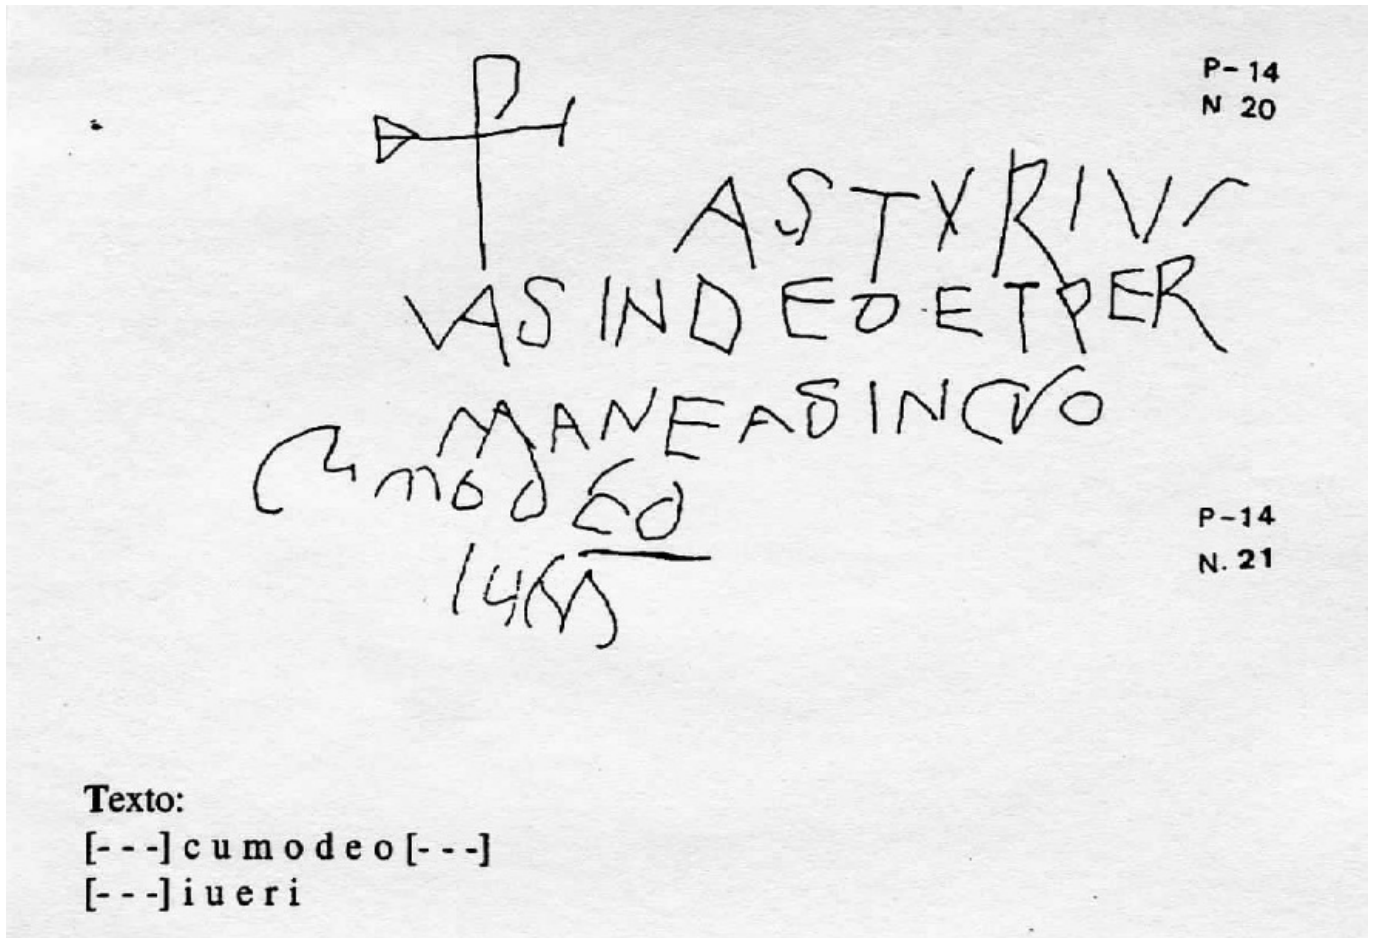 P-14
N 20
ASTYRIUS
VAS IN DEO ET PER
MANEAS IN CVO
Cumodeo
P-14
N. 21
Texto:
[- - -] c u m o d e o [- - -]
[- - -] i u e r i